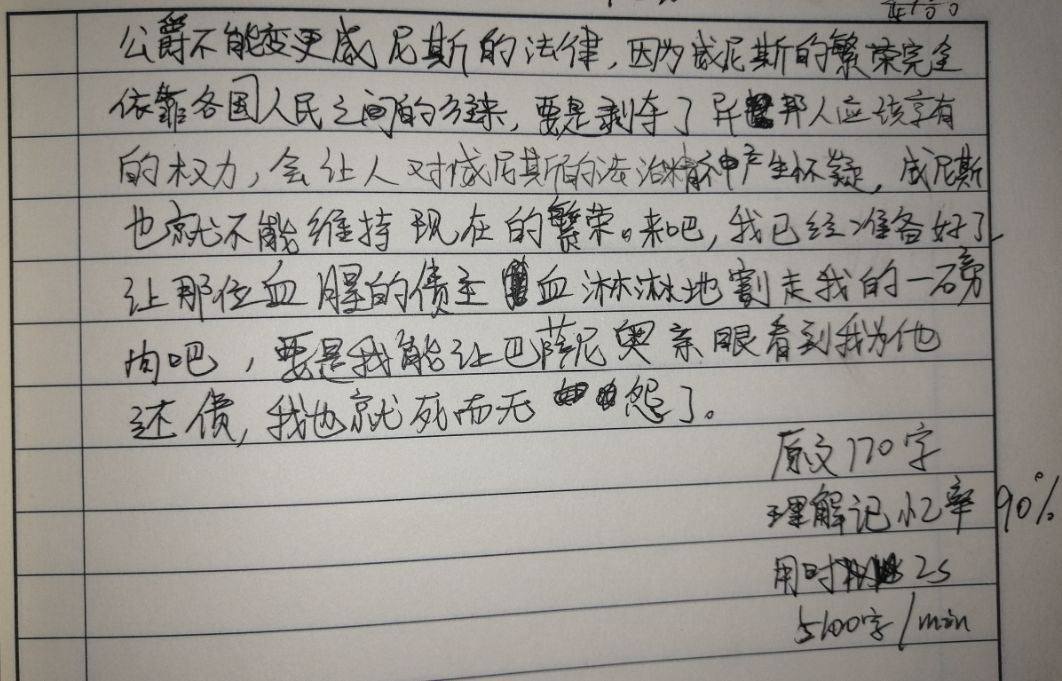 公爵不能变更威尼斯的法律，因为威尼斯的繁荣完全
依靠各国人民之间的往来，要是剥夺了异邦人应该享有
的权力，会让人对威尼斯的法治精神产生怀疑，威尼斯
也就不能维持现在的繁荣。来吧，我已经准备好了，
让那位血腥的债主血淋淋地割走我的一磅
肉吧，要是我能让巴萨尼奥亲眼看到我为他
还债，我也就死而无怨了。
原文170字
理解记忆率90%
用时2s
5100字/min